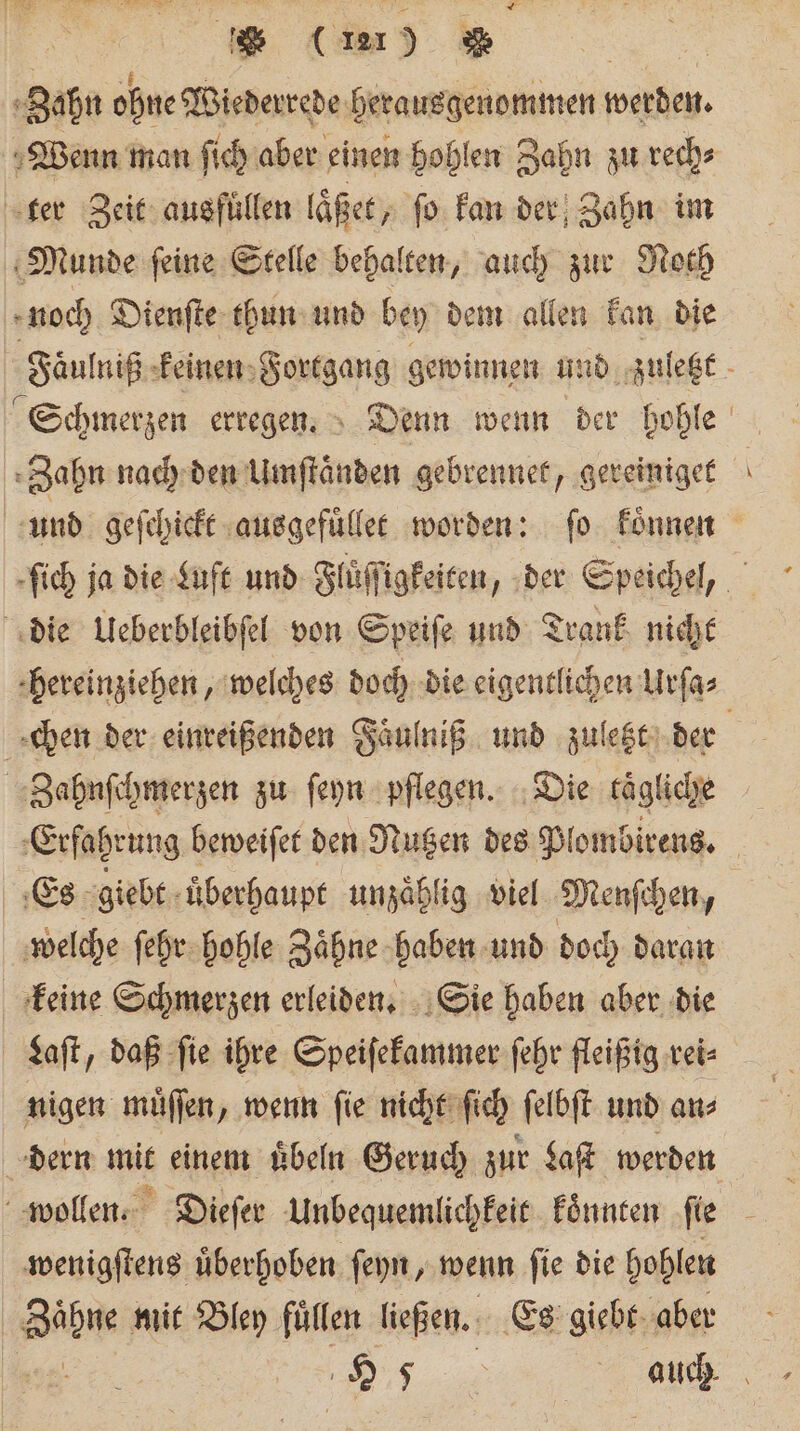 ❀ ( 121 ) ❀
Zahn ohne Wiederrede herausgenommen werden.
Wenn man ſich aber einen hohlen Zahn zu rech⸗
ter Zeit ausfuͤllen laͤßet, ſo kan der Zahn im
Munde ſeine Stelle behalten, auch zur Noth
noch Dienſte thun und bey dem allen kan die
Faͤulniß keinen Fortgang gewinnen und zuletzt
Schmerzen erregen. Denn wenn der hohle
Zahn nach den Umſtaͤnden gebrennet, gereiniget
und geſchickt ausgefuͤllet worden: ſo koͤnnen
ſich ja die Luft und Fluͤſſigkeiten, der Speichel,
die Ueberbleibſel von Speiſe und Trank nicht
hereinziehen, welches doch die eigentlichen Urſa⸗
chen der einreißenden Faͤulniß und zuletzt der
Zahnſchmerzen zu ſeyn pflegen. Die taͤgliche
Erfahrung beweiſet den Nutzen des Plombirens.
Es giebt uͤberhaupt unzaͤhlig viel Menſchen,
welche ſehr hohle Zaͤhne haben und doch daran
keine Schmerzen erleiden. Sie haben aber die
Laſt, daß ſie ihre Speiſekammer ſehr fleißig rei⸗
nigen muͤſſen, wenn ſie nicht ſich ſelbſt und an⸗
dern mit einem uͤbeln Geruch zur Laſt werden
wollen. Dieſer Unbequemlichkeit koͤnnten ſie
wenigſtens uͤberhoben ſeyn, wenn ſie die hohlen
Zaͤhne mit Bley fuͤllen ließen. Es giebt aber
H 5 auch